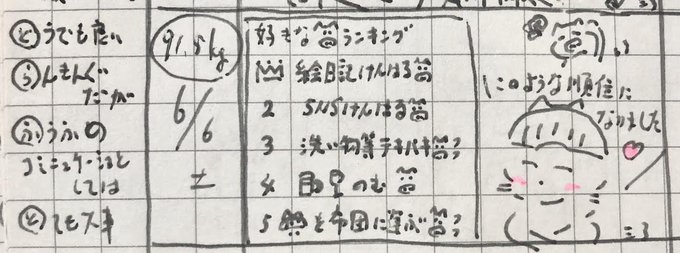 どうでも良い
らんきんぐ
だが
ふうふの
コミュニケーションと
しては
とても大事
91.5kg
6/6
土
好きなランキング
絵日記けんはる
2 SNSけんはる
3 洗い物等テキパキ
4 のむ
5 を布団に運ぶ
このような順位に
なりました